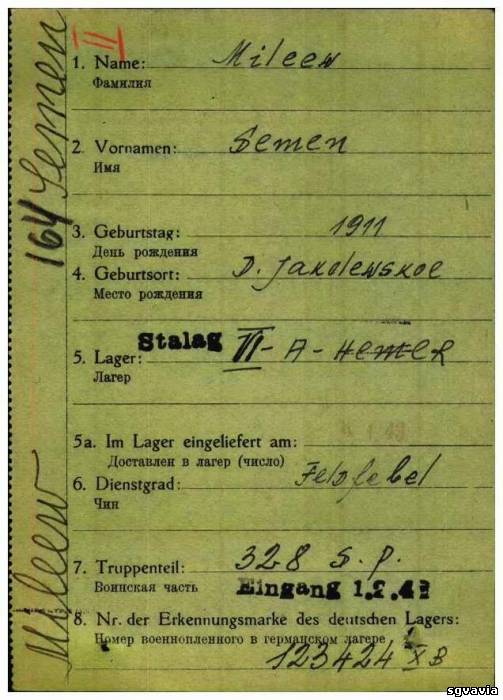 II
1. Name: Mileew
Фамилия
2. Vornamen: Semen
Имя
3. Geburtstag: 1911
День рождения
4. Geburtsort: D. Jakolewskoe
Место рождения
5. Lager: Stalag VI - A - Hemer
Лагер
5a. Im Lager eingeliefert am:
Доставлен в лагер (число)
6. Dienstgrad: Feldfebel
Чин
7. Truppenteil: 328 S. P.
Воинская часть Eingang 1.2.43
8. Nr. der Erkennungsmarke des deutschen Lagers:
Номер военнопленного в германском лагере
123424 XB
Mileew 164 Semen
sgvavia